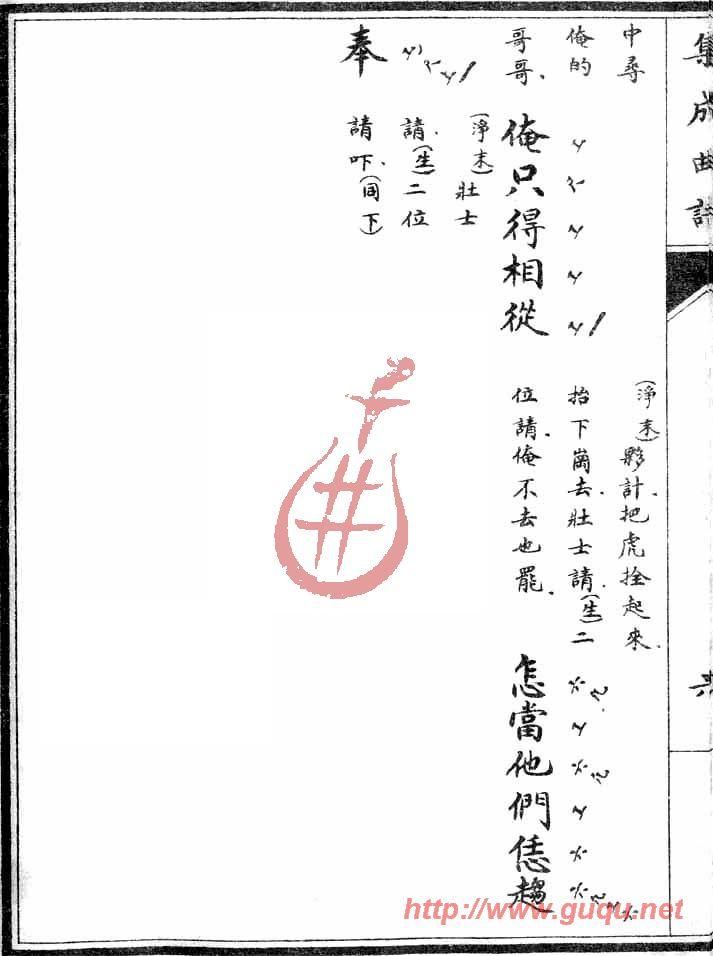 集成曲譜
中尋
(淨末)夥計.把虎拴起來.
俺的
抬下崗去.壯士請.(生)二
哥哥.
俺只得相從
位請.俺不去也罷.
怎當他們恁趨
(淨末)壯士
請.(生)二位
奉
請吓.(同下)
http://www.guqu.net